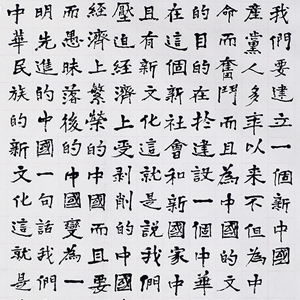 我們
建立一個新中
產黨人多年以來不但為中
命而奮鬥而且為中國的文
的目的在於建設一個中華
在這個新社會和新國家中
且有新文化這就是說我們
壓迫經濟上受剝削的中國
經濟上繁榮的中國而且要
而愚昧落後的中國變為一
明先進的中國一句話我們
中華民族的新文化這就是